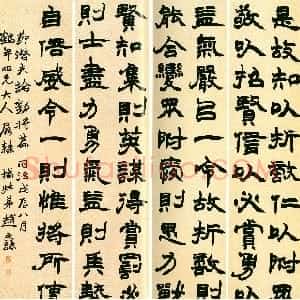 是故知以折敵仁以附眾
敬以招賢信以必賞勇以
益氣嚴以一令故折敵則
能合變眾附則思力戰
賢知集則英謀得賞罰必
則士盡力勇氣益則兵埶
自倍威令一則惟將所使
節潛夫論勸將篇 同治戊辰八月
鶴年四兄大人屬隸 撝叔弟趙之謙